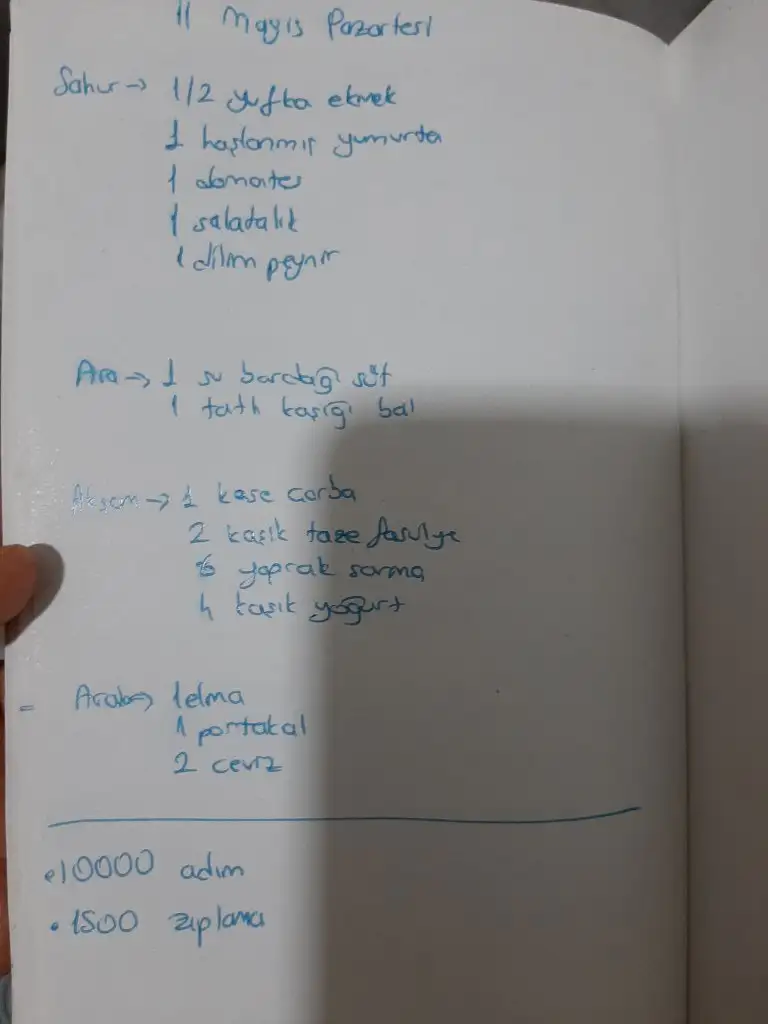 11 Mayıs Pazartesi
Sahur → 1/2 yufka ekmek
1 haşlanmış yumurta
1 domates
1 salatalık
1 dilim peynir
Ara → 1 su bardağı süt
1 tatlı kaşığı bal
Akşam → 1 kase çorba
2 kaşık taze fasulye
6 yaprak sarma
4 kaşık yoğurt
- Ara → 1 elma
1 portakal
2 ceviz
• 10000 adım
• 1500 zıplama